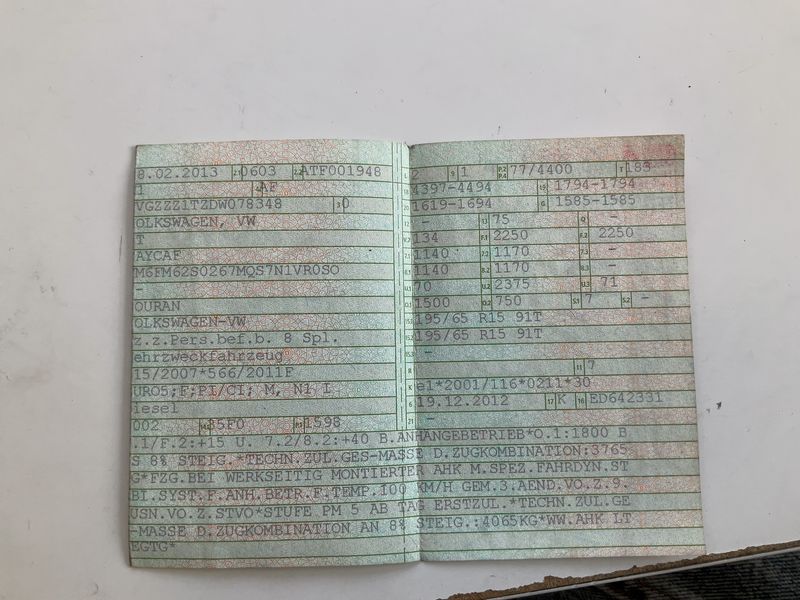 8.02.2013 2.1 0603 2.2 ATF001948
1 AF
VGZZZ1TZDW078348 3 0
OLKSWAGEN, VW
T
AYCAF
M6FM62S0267MQS7N1VR0SO
-
OURAN
OLKSWAGEN-VW
z.z.Pers.bef.b. 8 Spl.
ehrzweckfahrzeug
15/2007*566/2011F
URO5;F;PI/CI; M, N1 I
iesel
002 35F0 P.1 1598
2 9 1 P.2 P.4 77/4400 T 183
4397-4494 19 1794-1794
1619-1694 G 1585-1585
- 13 75 Q -
134 F.1 2250 F.2 2250
1140 7.2 1170 7.3 -
1140 8.2 1170 8.3 -
70 U.2 2375 U.3 71
1500 O.2 750 S.1 7 S.2 -
195/65 R15 91T
195/65 R15 91T
-
R 11 7
K e1*2001/116*0211*30
19.12.2012 17 K 16 ED642331
21 -
.1/F.2:+15 U. 7.2/8.2:+40 B.ANHANGEBETRIEB*O.1:1800 B
S 8% STEIG.*TECHN.ZUL.GES-MASSE D.ZUGKOMBINATION:3765
G*FZG.BEI WERKSEITIG MONTIERTER AHK M.SPEZ.FAHRDYN.ST
BI.SYST.F.ANH.BETR.F.TEMP.100 KM/H GEM.3.AEND.VO.Z.9.
USN.VO.Z.STVO*STUFE PM 5 AB TAG ERSTZUL.*TECHN.ZUL.GE
-MASSE D.ZUGKOMBINATION AN 8% STEIG.:4065KG*WW.AHK LT
EGTG*